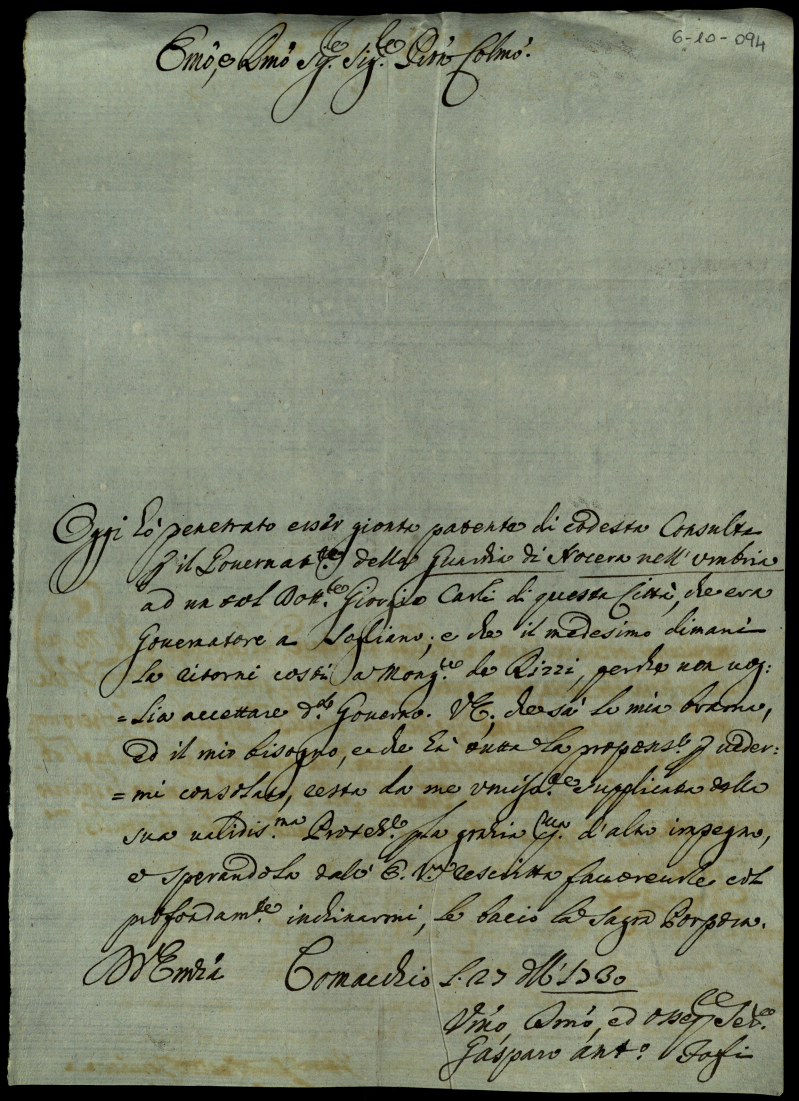 6-10-094
Emõ, e Rmõ Sig.re Sig.re Pron Colmõ.
Oggi hò penetrato esser gionta patente di codesta Consulta
p il Governat.re della Guardia di Nocera nell'Umbria
ad un tal Dott.re Giorgio Carli di questa Città, che era
Governatore a Sogliano; e che il medesimo dimani
la ritorni costì a Mong.re de Rizzi, perche non vog:
=lia accettare d.o Governo. V.E., che sà la mia brama,
ed il mio bisogno, e che hà tutta la propens.e p veder:
=mi consolato, resta da me umilm.te supplicata della
sua validis.ma Protez.e p la grazia d'alto impegno,
e sperandola dall'E.V. rescritta favorevole col
profondam.te inchinarmi, le bacio la Sagra Porpora.
D V Emza Comacchio li 27 1730
Vmo, Dmo, ed osseq Ser.e
Gasparo Ant.o